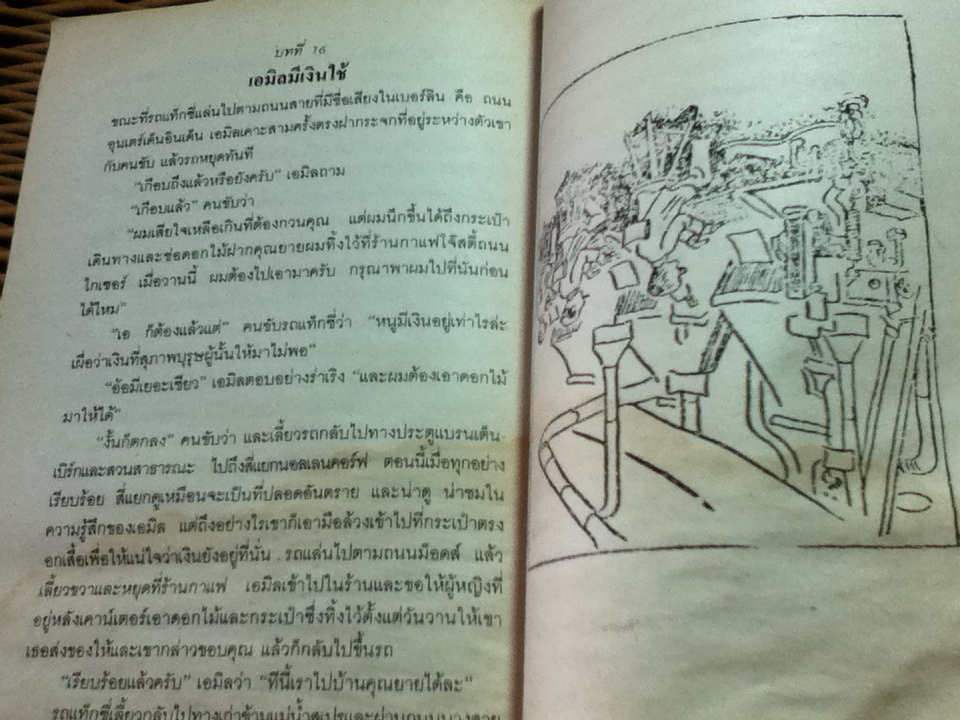 บทที่ 16
เอมิลมีเงินใช้
ขณะที่รถแท็กซี่แล่นไปตามถนนสายที่มีชื่อเสียงในเบอร์ลิน คือ ถนน
อุนเตร์เด็นอินเด็น เอมิลเคาะสามครั้งตรงฝากระจกที่อยู่ระหว่างตัวเขา
กับคนขับ แล้วรถหยุดทันที
"เกือบถึงแล้วหรือยังครับ" เอมิลถาม
"เกือบแล้ว" คนขับว่า
"ผมเสียใจเหลือเกินที่ต้องกวนคุณ แต่ผมนึกขึ้นได้ถึงกระเป๋า
เดินทางและช่อดอกไม้ฝากคุณยายผมทิ้งไว้ที่ร้านกาแฟโจ๊สตี้ถนน
ไกเซอร์ เมื่อวานนี้ ผมต้องไปเอามาครับ กรุณาพาผมไปที่นั่นก่อน
ได้ไหม"
"เอ ก็ต้องแล้วแต่" คนขับรถแท็กซี่ว่า "หนูมีเงินอยู่เท่าไรล่ะ
เผื่อว่าเงินที่สุภาพบุรุษผู้นั้นให้มาไม่พอ"
"อ้อมีเยอะเชียว" เอมิลตอบอย่างร่าเริง "และผมต้องเอาดอกไม้
มาให้ได้"
"งั้นก็ตกลง" คนขับว่า และเลี้ยวรถกลับไปทางประตูแบรนเด็น-
เบิร์กและสวนสาธารณะ ไปถึงสี่แยกนอลเลนคอร์ฟ ตอนนี้เมื่อทุกอย่าง
เรียบร้อย สี่แยกดูเหมือนจะเป็นที่ปลอดอันตราย และน่าดู น่าชมใน
ความรู้สึกของเอมิล แต่ถึงอย่างไรเขาก็เอามือล้วงเข้าไปที่กระเป๋าตรง
อกเสื้อเพื่อให้แน่ใจว่าเงินยังอยู่ที่นั่น รถแล่นไปตามถนนม็อตส์ แล้ว
เลี้ยวขวาและหยุดที่ร้านกาแฟ เอมิลเข้าไปในร้านและขอให้ผู้หญิงที่
อยู่หลังเคาน์เตอร์เอาดอกไม้และกระเป๋าซึ่งทิ้งไว้ตั้งแต่วันวานให้เขา
เธอส่งของให้และเขากล่าวขอบคุณ แล้วก็กลับไปขึ้นรถ
"เรียบร้อยแล้วครับ" เอมิลว่า "ทีนี้เราไปบ้านคุณยายได้ละ"
รถแท็กซี่เลี้ยวกลับไปทางเก่าข้ามแม่น้ำสเปรและผ่านถนน